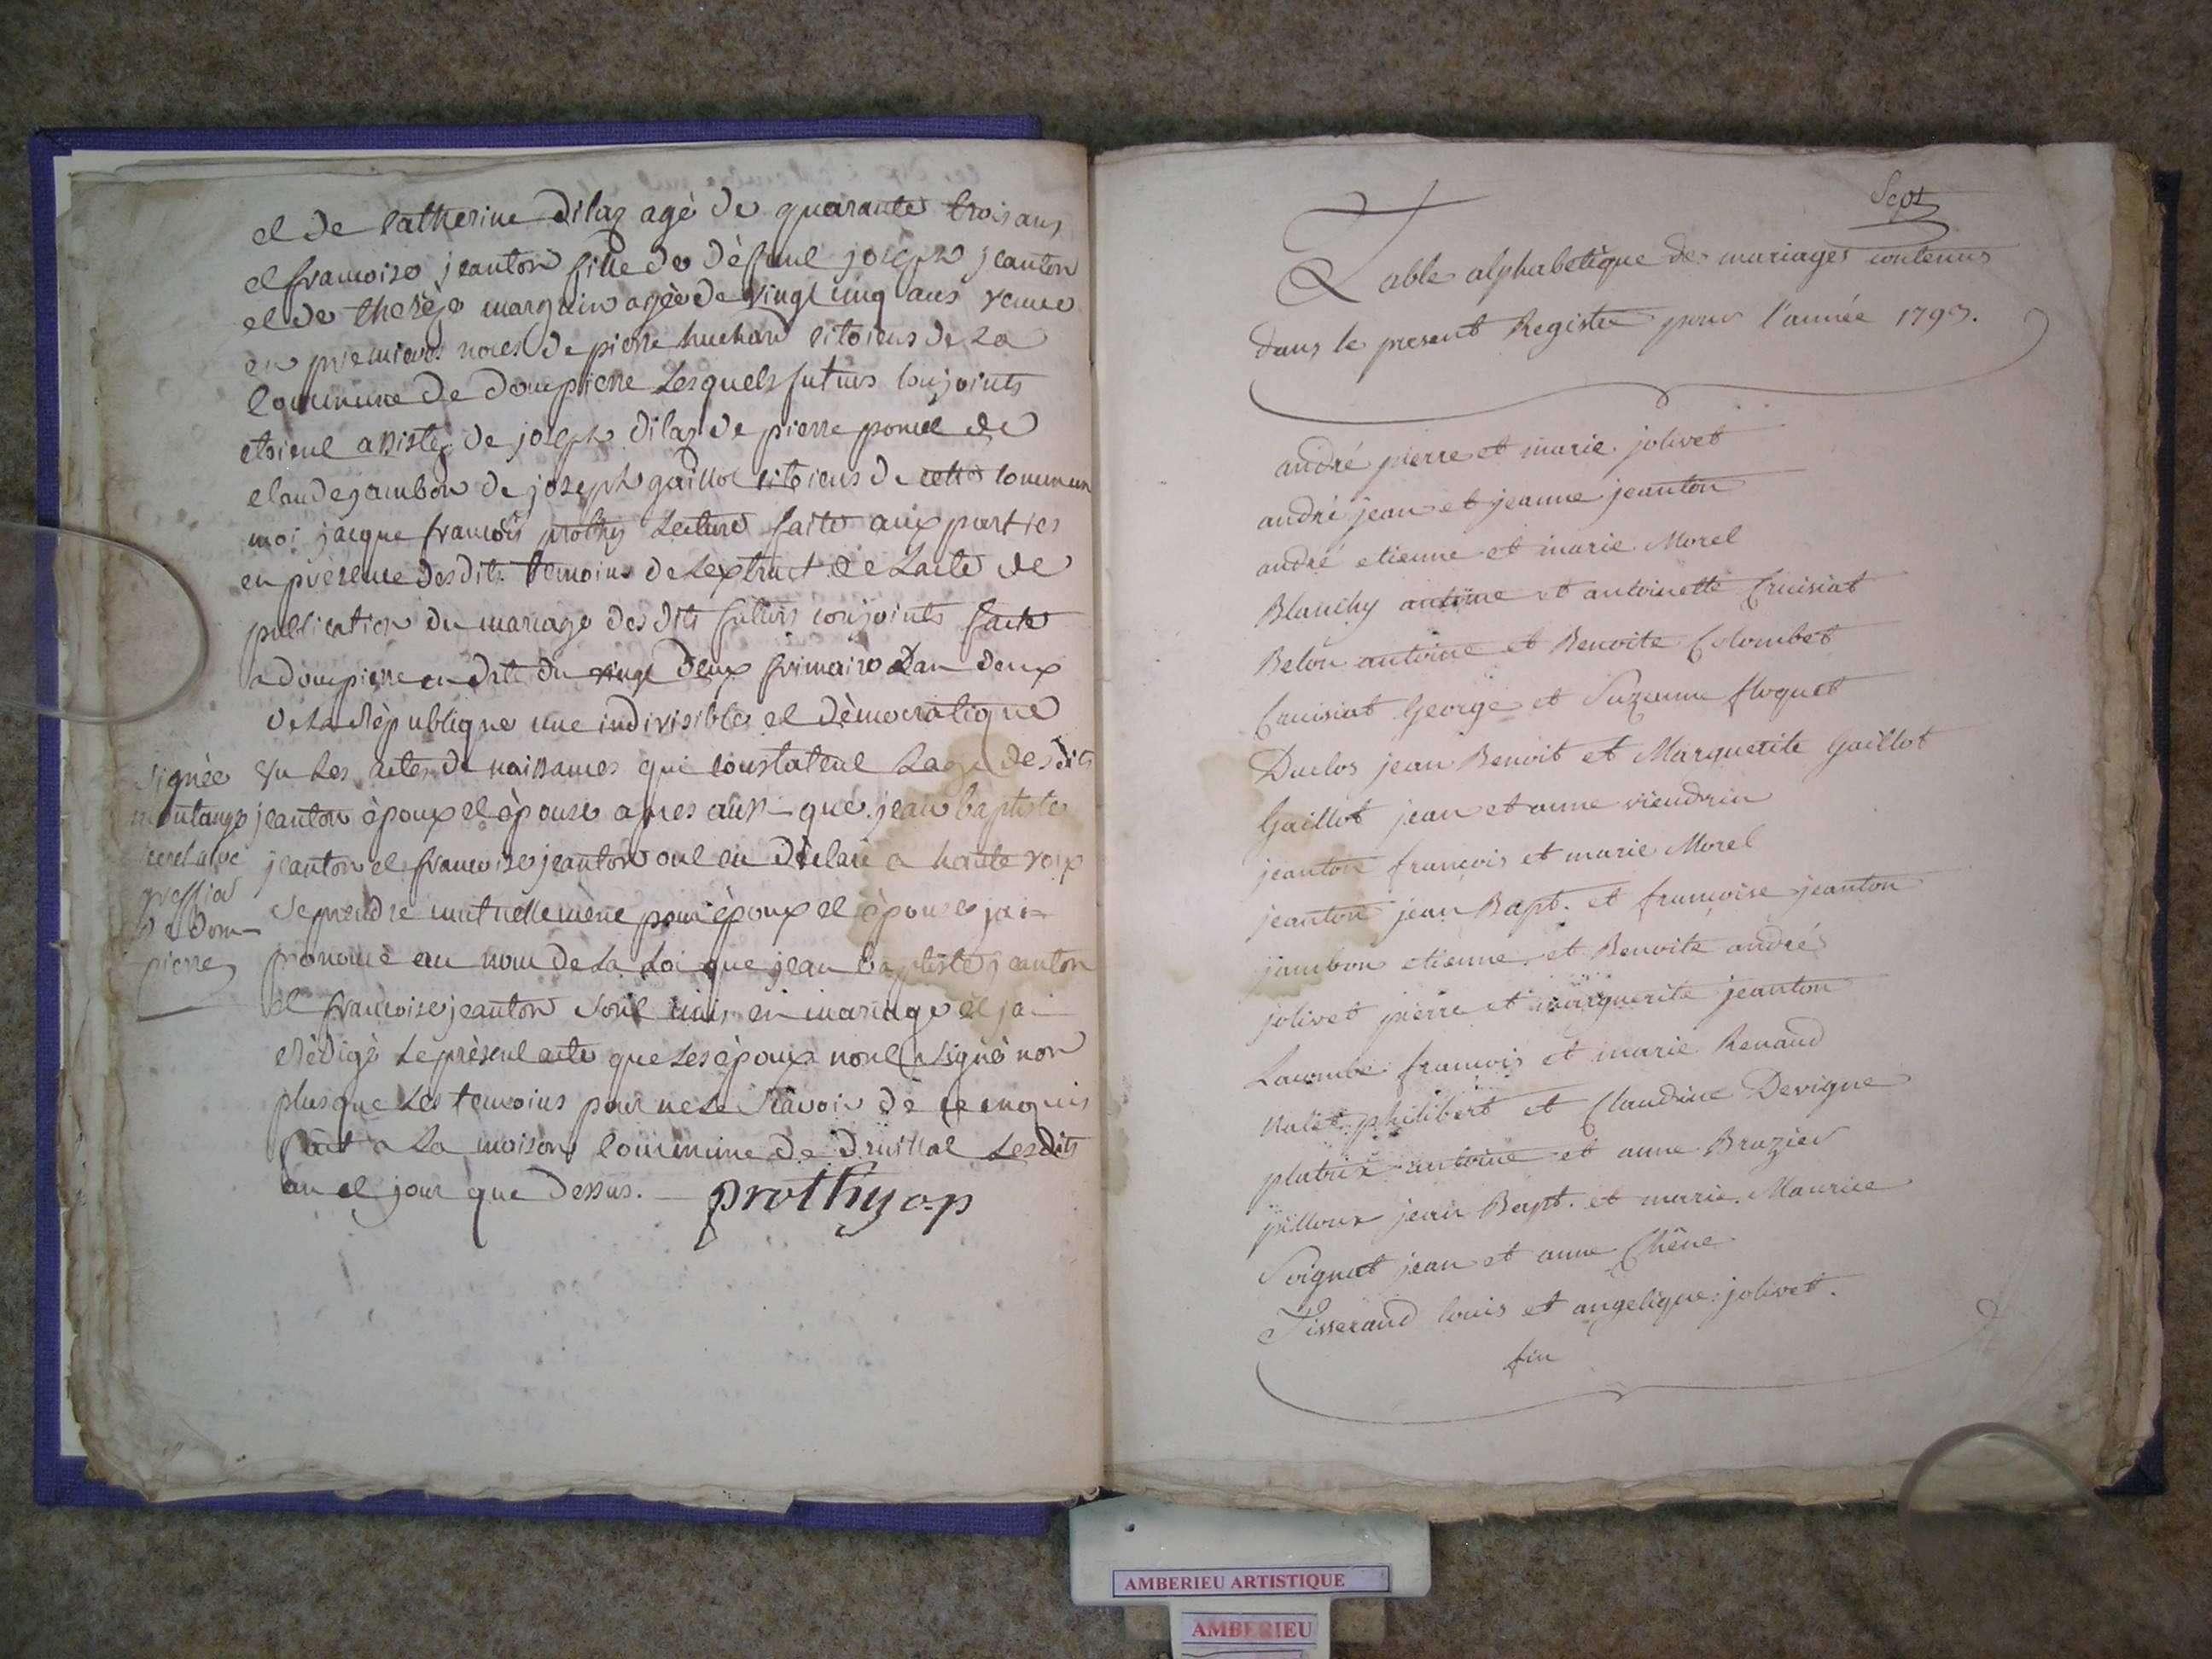 et de Catherine Dilaz agé de quarante trois ans
et francoise jeanton fille de défunt joseph jeanton
et de therèze margain agée de vingt cinq ans veuve
en premieres noces de pierre huchard citoiens de La
Commune de dompierre Lesquels futurs conjoints
etoient assistez de joseph dilaz de pierre de
claude gambon de joseph gaillot citoiens de cette commune
moi jacque francois prothy Lecture faite aux parties
en présence desdits temoins de Lextrait de Lacte de
publication du mariage des dits futurs conjoints faite
a dompierre en date du vingt deux frimaire Lan deux
de La République une indivisible et démocratique
vu Les actes de naissances qui constatent Lage des dits
jeanton époux et épouse apres aussi que jean baptiste
jeanton et francoise jeanton ont eu déclaré a haute voix
se prendre mutuellement pour époux et épouse jai
prononcé au nom de La Loi que jean baptiste jeanton
et francoise jeanton sont unis en mariage et jai
rédigé Le présent acte que Les époux nont signé non
plus que Les temoins pour ne Le scavoir de ce enquis
fait a La maison Commune de druillat Lesdits
an et jour que dessus. prothy o.p
Signée
montange
secretaire
greffier
de dom-
pierre
Sept
Table alphabétique des mariages contenus
dans le present Registre pour l'année 1793.
andré pierre et marie jolivet
andré jean et jeanne jeanton
andré etienne et marie Morel
Blanchy antoine et antoinette Cruisiat
Belon antoine et Benoite Colombet
Cruisiat George et Suzanne floquet
Duclos jean Benoit et Marguerite Gaillot
Gaillot jean et anne viendrin
jeanton francois et marie Morel
jeanton jean Bapt. et francoise jeanton
jambon etienne et Benoite andré
jolivet pierre et marguerite jeanton
Lacombe francois et marie Renaud
Nalet philibert et Claudine Devigne
platrix antoine et anne Brazier
pilloux jean Bapt. et marie Maurice
Soignet jean et anne Chêne
Tisserand louis et angelique jolivet.
fin
AMBERIEU ARTISTIQUE
AMBERIEU